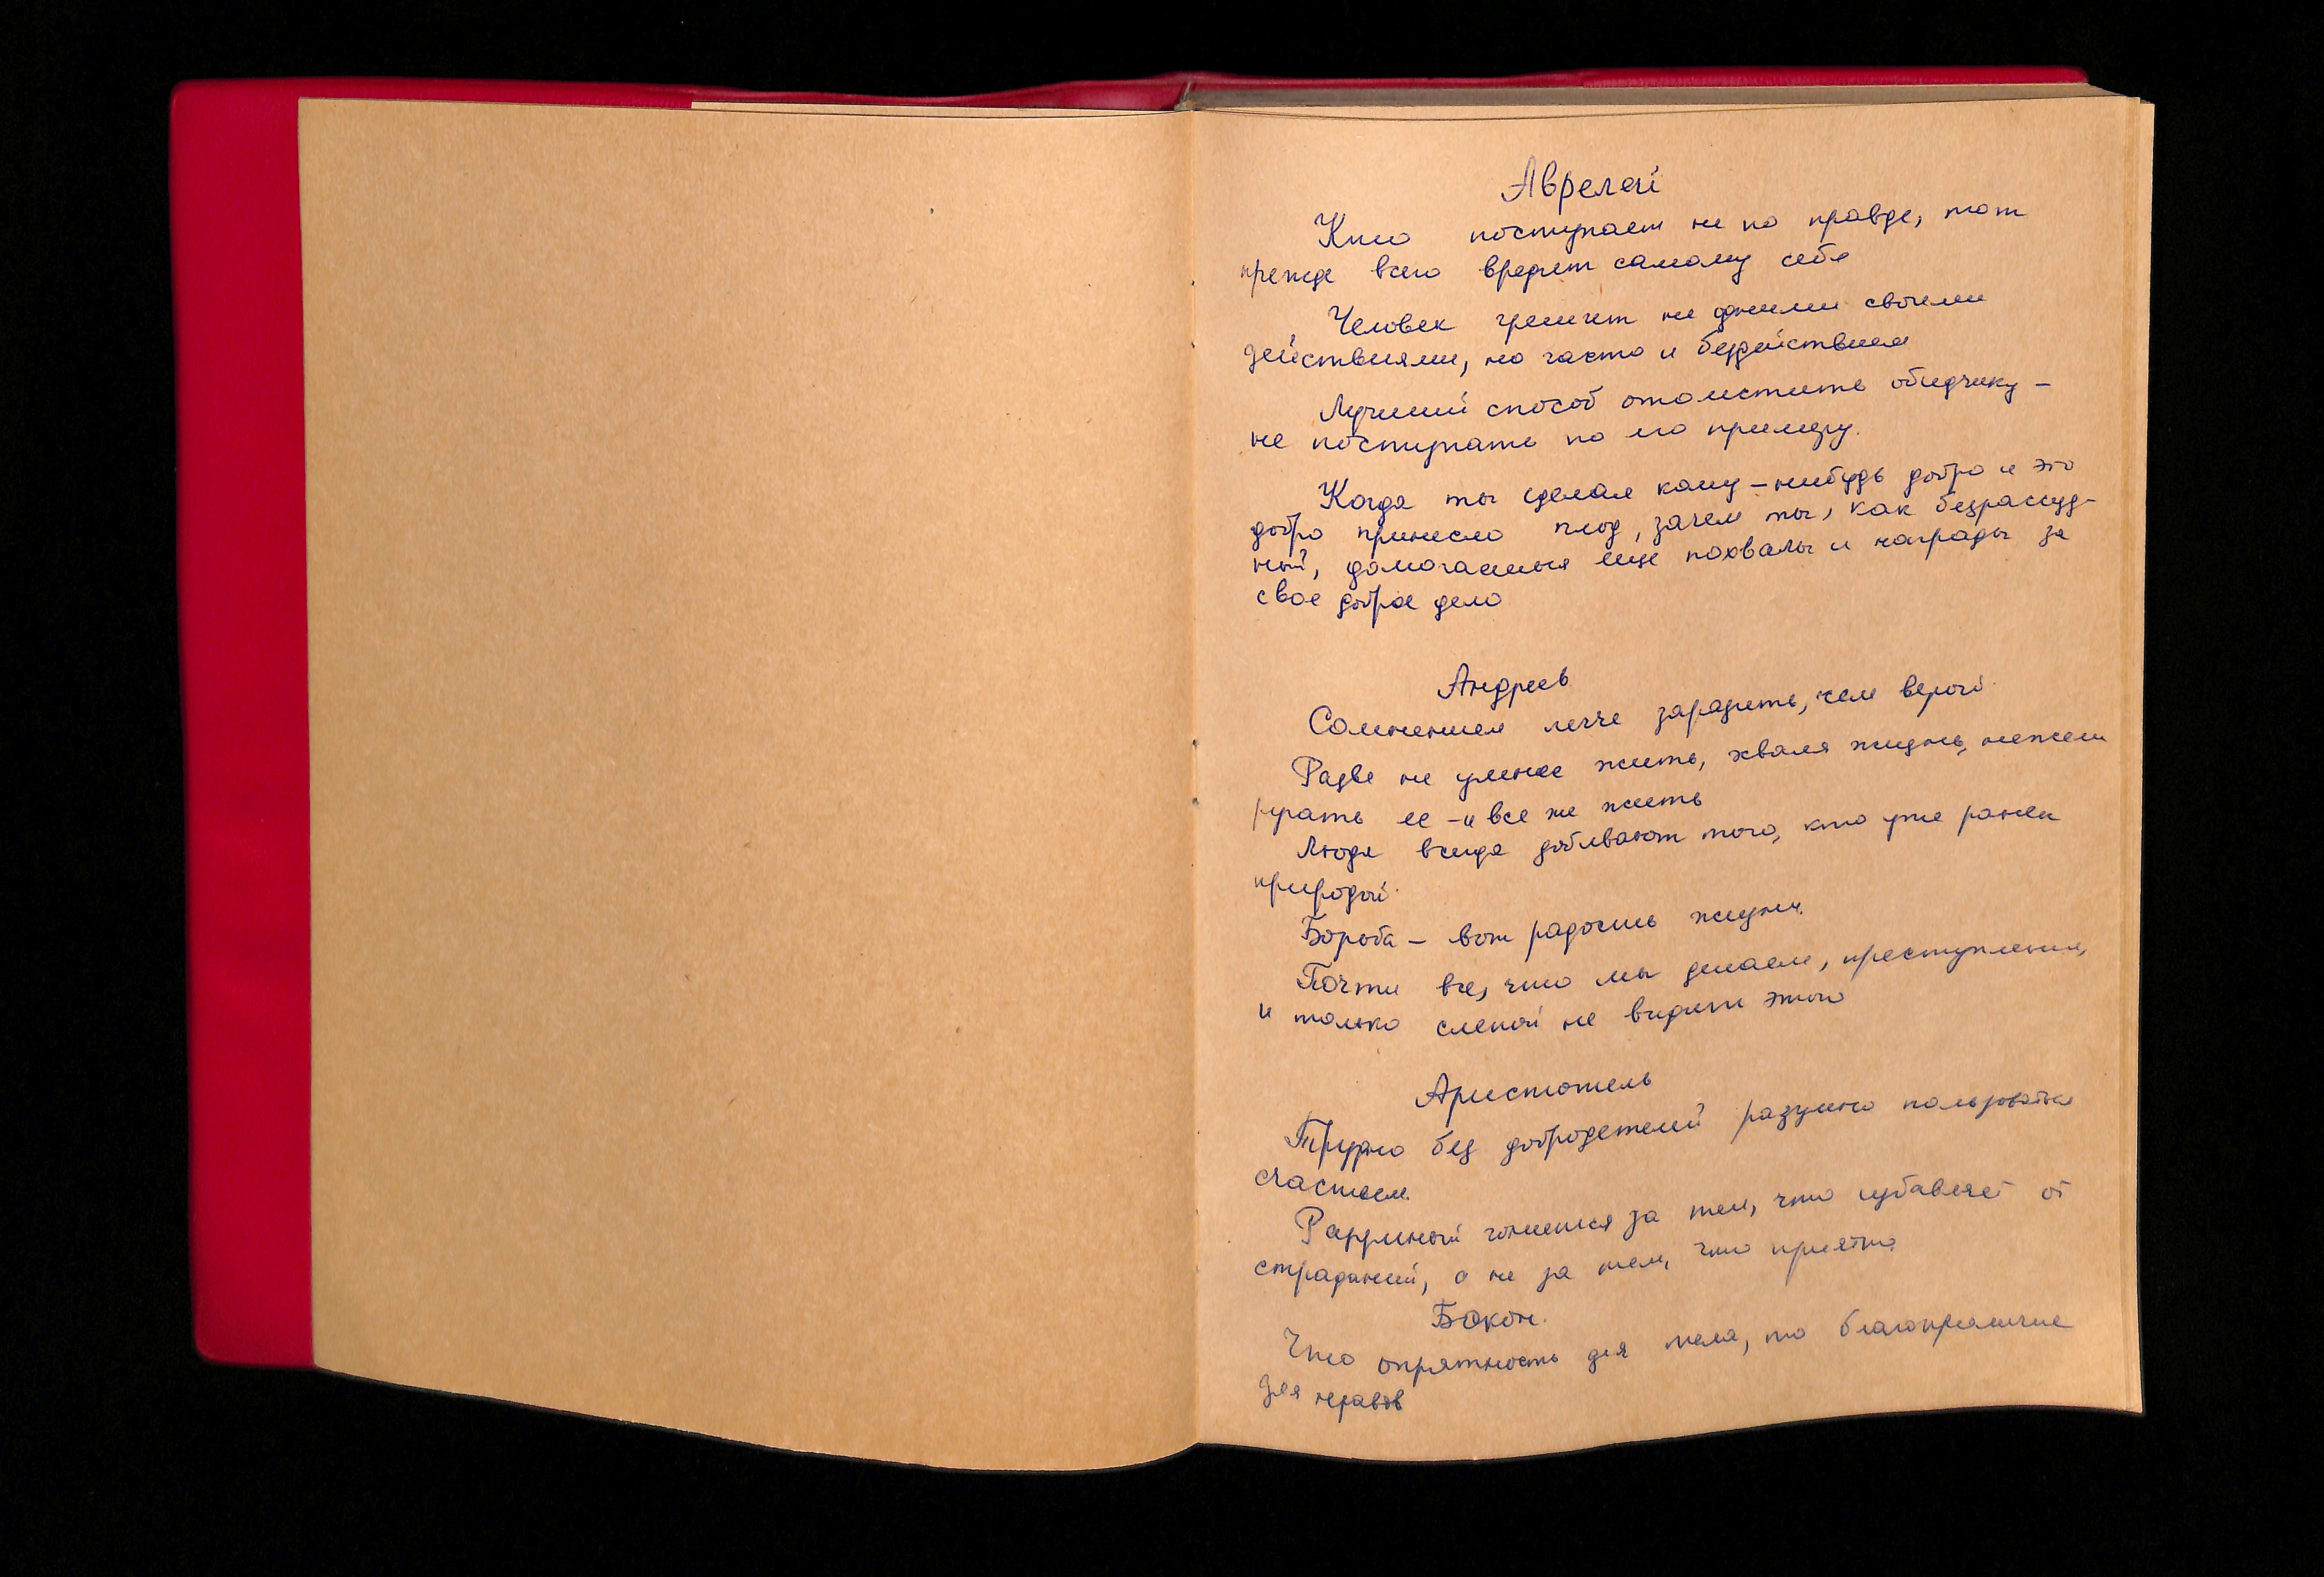 Аврелий
Кто поступает не по правде, тот
прежде всего вредит самому себе
Человек грешит не одними своими
действиями, но часто и бездействием
Лучший способ отомстить обидчику –
не поступать по его примеру.
Когда ты сделал кому-нибудь добро и это
добро принесло плод, зачем ты, как безрассуд-
ный, домогаешься еще похвалы и награды за
свое доброе дело
Андреев
Сомнением легче заразить, чем верой.
Разве не умнее жить, хваля жизнь, нежели
ругать ее – и все же жить
Люди всегда добивают того, кто уже ранен
природой.
Борьба – вот радость жизни.
Почти все, что мы делаем, преступление,
и только слепой не видит этого
Аристотель
Трудно без добродетелей разумно пользоваться
счастьем.
Разумный гонится за тем, что избавляет от
страданий, а не за тем, что приятно.
Бэкон.
Что опрятность для тела, то благоприличие
для нравов